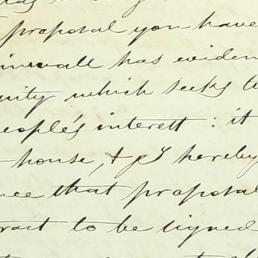 proposal you have
has eviden
unity which seeks to
eople's interett : it
house, & I hereby
nce that proposal
ract to be signed